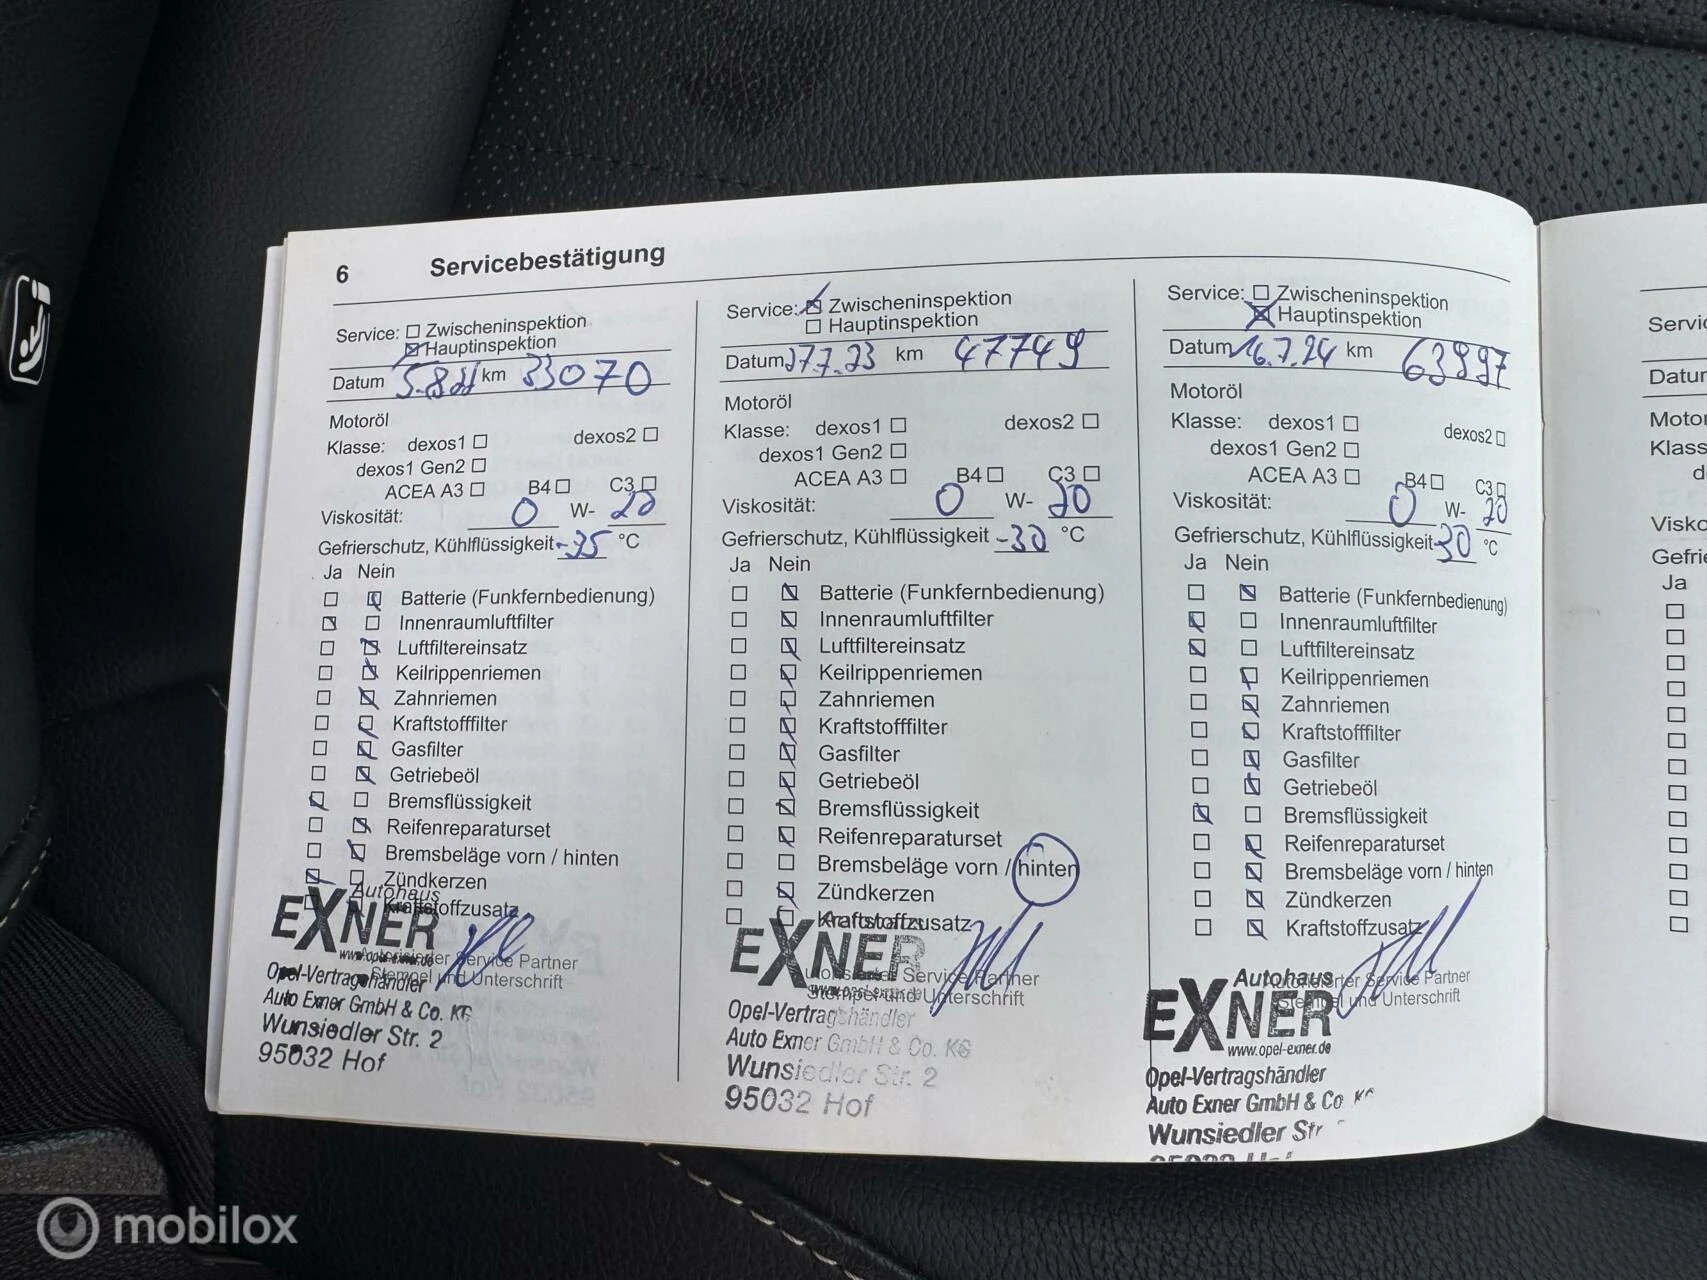 6 Servicebestätigung
Service: Zwischeninspektion
Hauptinspektion
Datum km 33070
Motoröl
Klasse: dexos1 dexos2
dexos1 Gen2
ACEA A3 B4 C3
Viskosität: 0 W- 20
Gefrierschutz, Kühlflüssigkeit -35 °C
Ja Nein
Batterie (Funkfernbedienung)
Innenraumluftfilter
Luftfiltereinsatz
Keilrippenriemen
Zahnriemen
Kraftstofffilter
Gasfilter
Getriebeöl
Bremsflüssigkeit
Reifenreparaturset
Bremsbeläge vorn / hinten
Zündkerzen
Kraftstoffzusatz
Autohaus
EXNER
www.opel-exner.de
Service Partner
Stempel und Unterschrift
Opel-Vertragshändler
Auto Exner GmbH & Co. KG
Wunsiedler Str. 2
95032 Hof
Service: Zwischeninspektion
Hauptinspektion
Datum 27.7.23 km 47749
Motoröl
Klasse: dexos1 dexos2
dexos1 Gen2
ACEA A3 B4 C3
Viskosität: 0 W- 20
Gefrierschutz, Kühlflüssigkeit -30 °C
Ja Nein
Batterie (Funkfernbedienung)
Innenraumluftfilter
Luftfiltereinsatz
Keilrippenriemen
Zahnriemen
Kraftstofffilter
Gasfilter
Getriebeöl
Bremsflüssigkeit
Reifenreparaturset
Bremsbeläge vorn / hinten
Zündkerzen
Kraftstoffzusatz
EXNER
Service Partner
Stempel und Unterschrift
Opel-Vertragshändler
Auto Exner GmbH & Co. KG
Wunsiedler Str. 2
95032 Hof
Service: Zwischeninspektion
Hauptinspektion
Datum 16.7.24 km 63997
Motoröl
Klasse: dexos1 dexos2
dexos1 Gen2
ACEA A3 B4 C3
Viskosität: 0 W- 20
Gefrierschutz, Kühlflüssigkeit -30 °C
Ja Nein
Batterie (Funkfernbedienung)
Innenraumluftfilter
Luftfiltereinsatz
Keilrippenriemen
Zahnriemen
Kraftstofffilter
Gasfilter
Getriebeöl
Bremsflüssigkeit
Reifenreparaturset
Bremsbeläge vorn / hinten
Zündkerzen
Kraftstoffzusatz
Autohaus
Service Partner
Stempel und Unterschrift
EXNER
www.opel-exner.de
Opel-Vertragshändler
Auto Exner GmbH & Co KG
Wunsiedler Str
Servic
Datur
Motor
Klass
d
Visko
Gefrie
Ja
mobilox